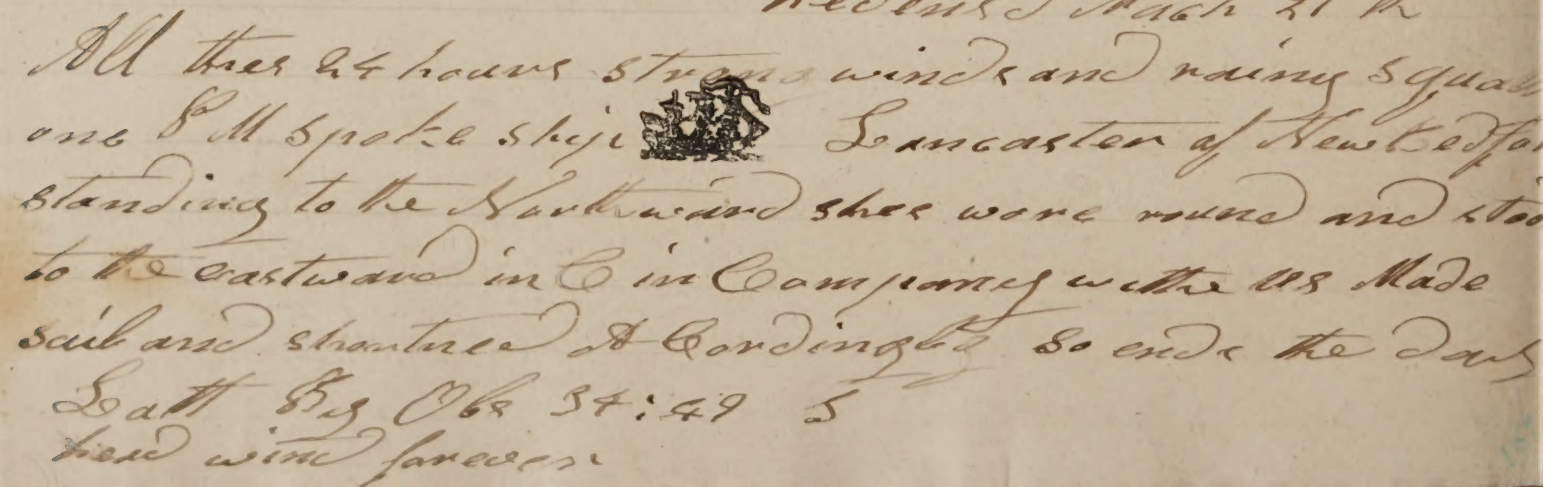 March 21 th
All thes 24 hours strong winds and rainy squalls
one P M spoke ship Lancaster of New Bedford
standing to the Northward shee wore round and stood
to the eastward in C in Company withe us Made
sail and shortned A Cordingly so ends the day
Latt By Obs 34:49 S
head wind forever